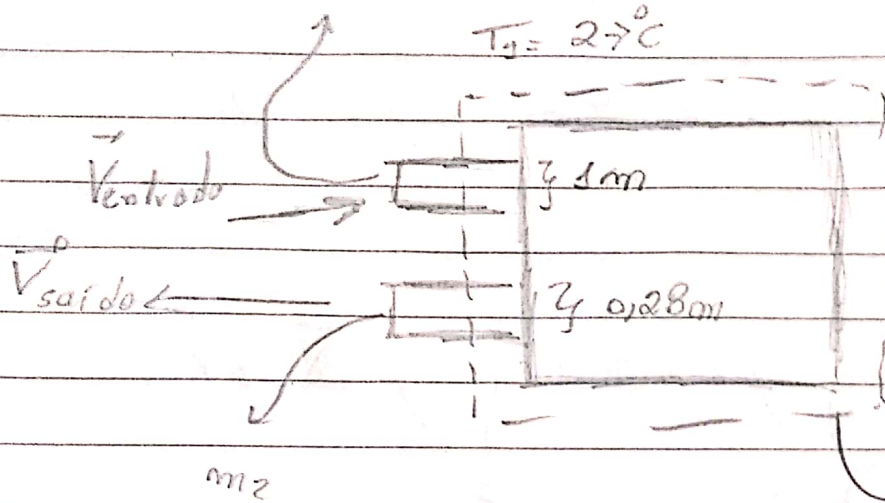 T1 = 27°C
Ventrada
} 1m
Vsaída
} 0,28m
m2